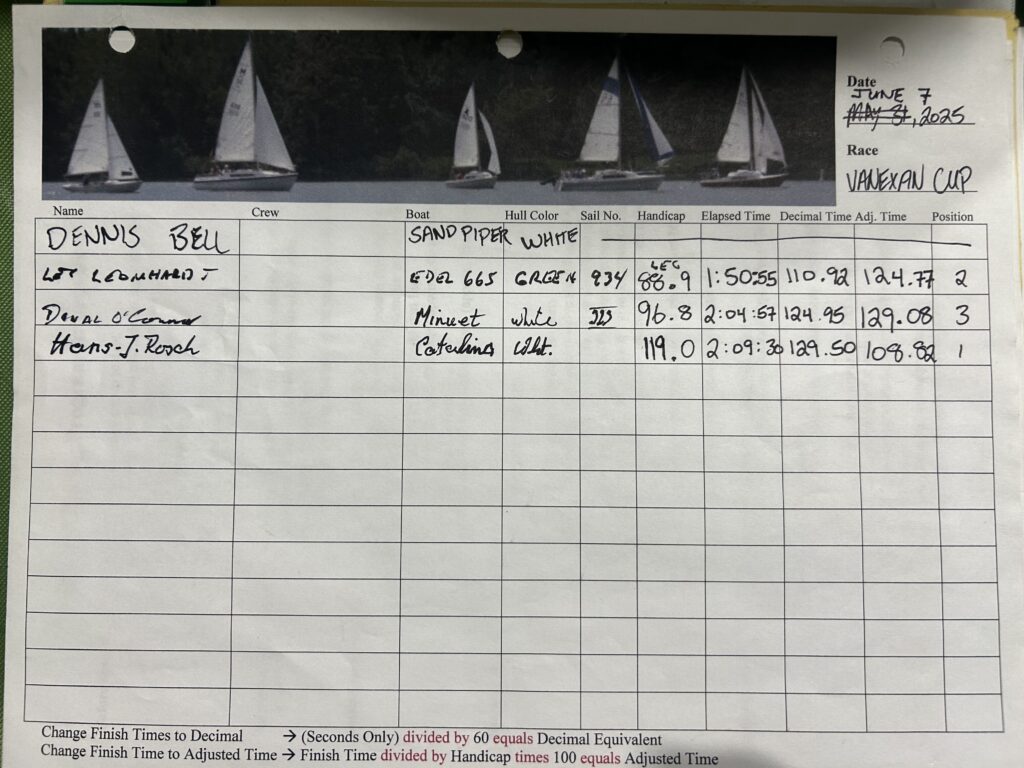 Date
JUNE 7
MAY 31, 2025
Race
VANEXAN CUP
Name Crew Boat Hull Color Sail No. Handicap Elapsed Time Decimal Time Adj. Time Position
DENNIS BELL SANDPIPER WHITE
LEONHARDT EDEL 665 GREEN 934 LEC 88.9 1:50:55 110.92 124.77 2
O'Connor Minuet White 96.8 2:04:57 124.95 129.08 3
Hans-J. Rosch Catalina Wht. 119.0 2:09:30 129.50 108.82 1
Change Finish Times to Decimal → (Seconds Only) divided by 60 equals Decimal Equivalent
Change Finish Time to Adjusted Time → Finish Time divided by Handicap times 100 equals Adjusted Time